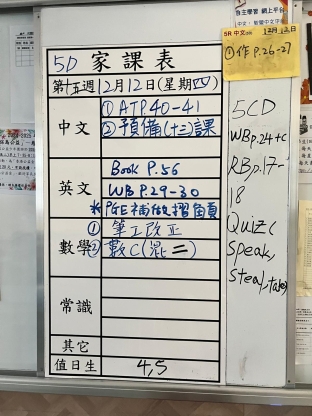 自主學習 網上平台
5R 中文 12月12日
①作 P.26-27
5D 家課表
第十五週12月12日(星期四)
中文
① ATP40-41
②預備(十三)課
英文
Book P.56
WB P.29-30
* PGE 補做摺角頁
數學
① 筆工改正
② 數C(混二)
常識
其它
值日生 4,5
5CD
WBp.24+c
RBp.17-
18
Quiz (
speak,
steal, take)